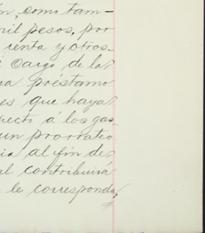 como tam-
mil pesos, por
renta y otros
Cargo de la
préstamo
es que haya
pecto á los gas
un prorrateo
al fin de
al contribuirá
le corresponda,